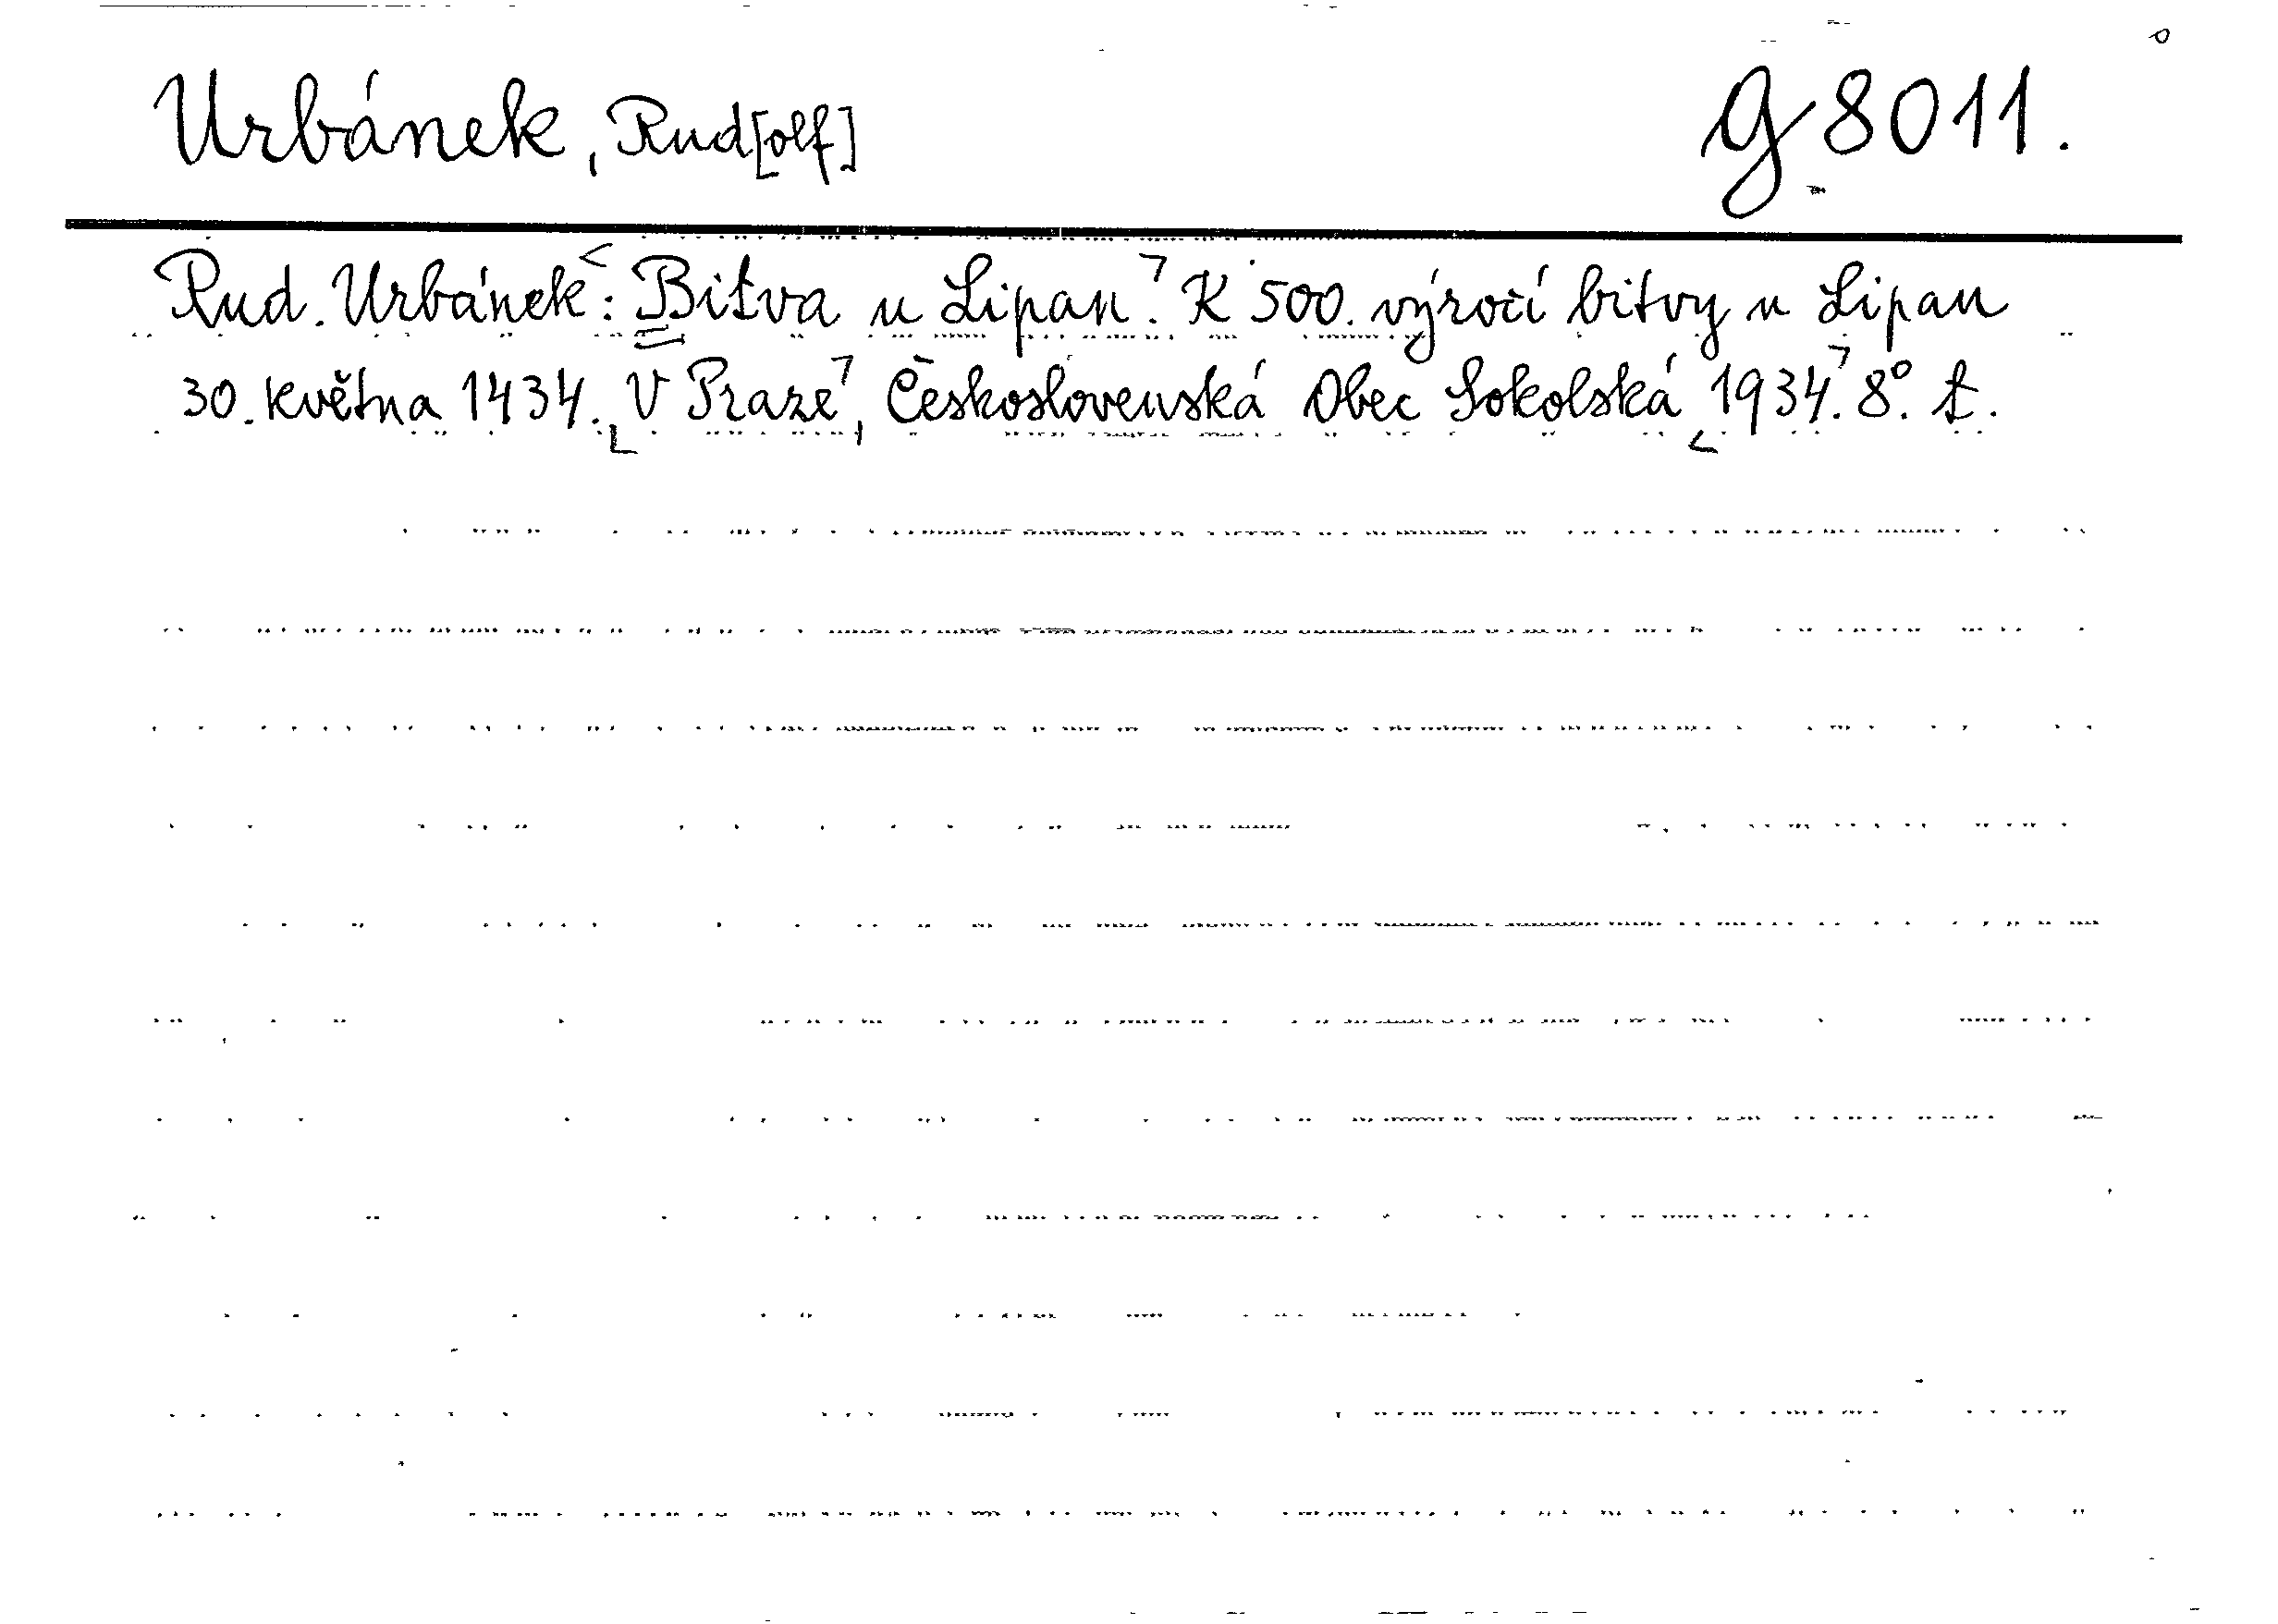 Urbánek, Rud[olf] g 8011.
Rud. Urbánek: Bitva u Lipan. K 500. výročí bitvy u Lipan
30. května 1434. V Praze, Československá Obec Sokolská 1934. 8°.